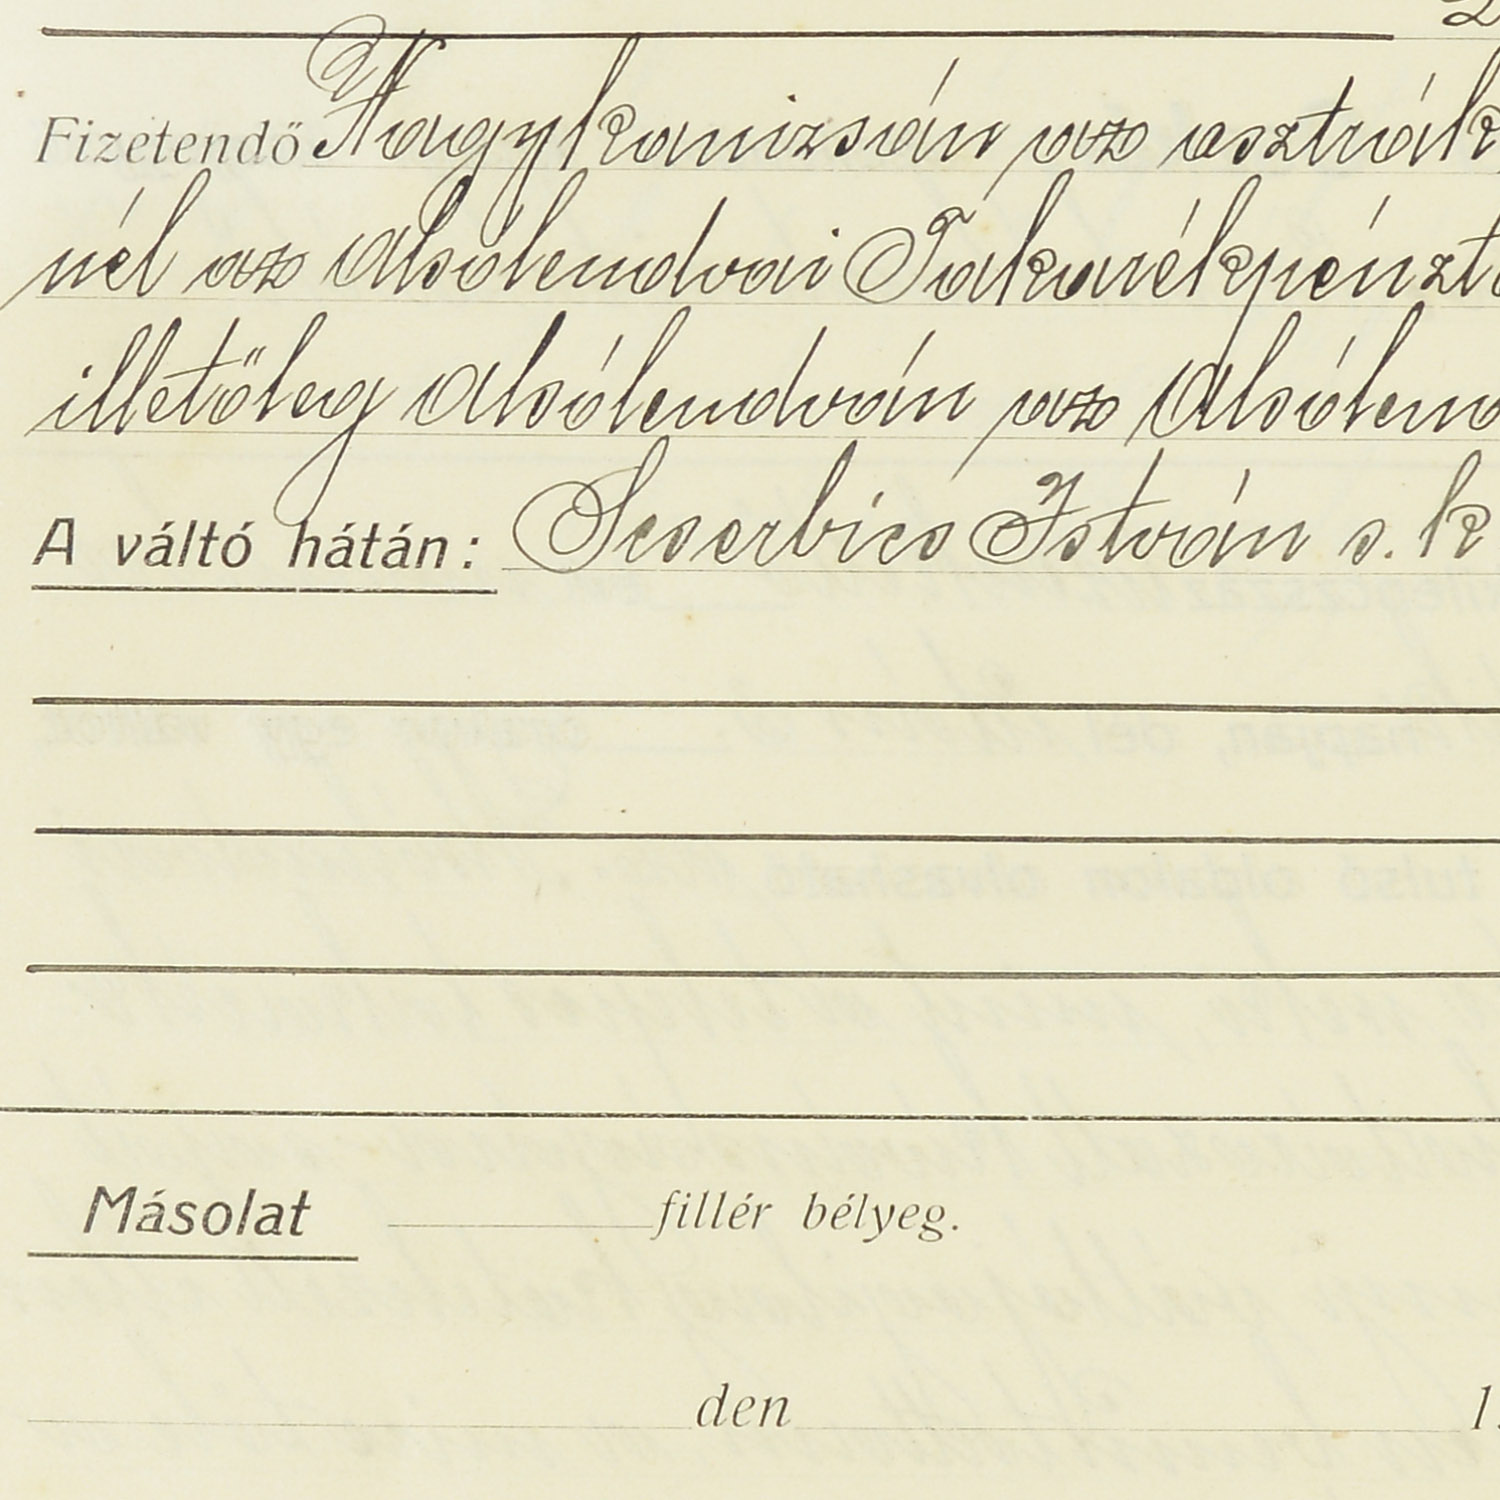 Fizetendő Nagykanizsán az osztrák
nél az Alsólendvai Takarékpénzt
illetőleg Alsólendván az Alsólend
A váltó hátán: István s. k
Másolat fillér bélyeg.
den 1